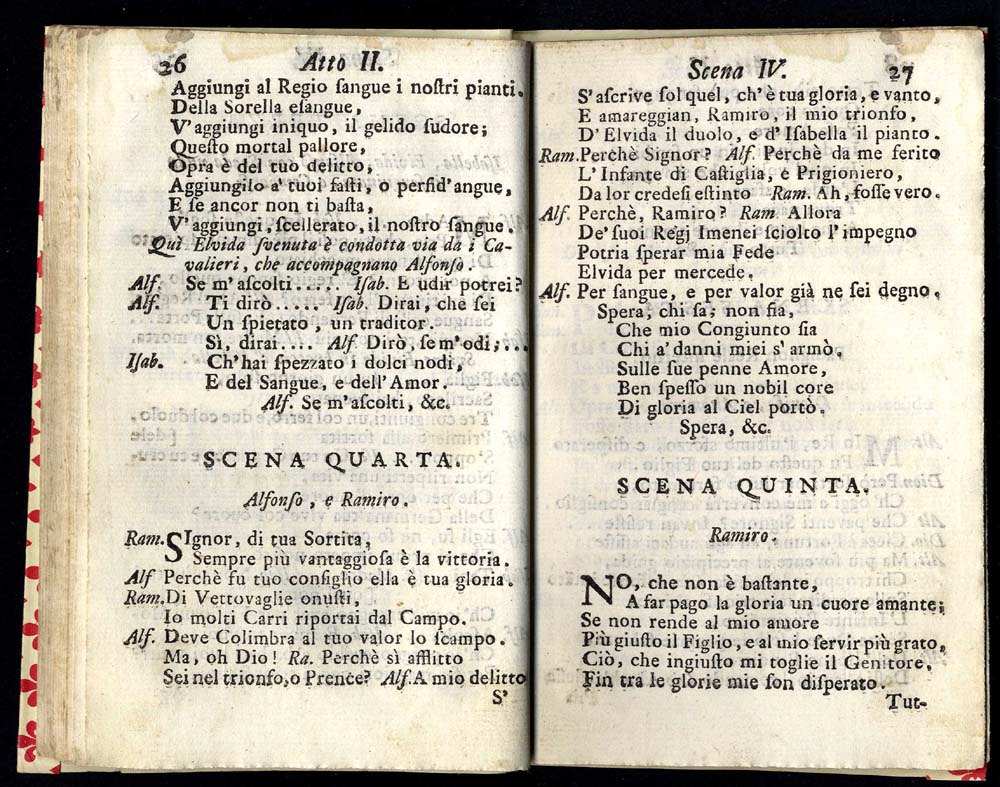 26 Atto II.
Aggiungi al Regio ſangue i noſtri pianti.
Della Sorella eſangue,
V'aggiungi iniquo, il gelido ſudore;
Queſto mortal pallore,
Opra è del tuo delitto,
Aggiungilo a' tuoi faſti, o perfid'angue,
E ſe ancor non ti baſta,
V'aggiungi, ſcellerato, il noſtro ſangue.
Quì Elvida ſvenuta è condotta via da i Ca-
valieri, che accompagnano Alfonſo.
Alf. Se m'aſcolti..... Iſab. E udir potrei?
Alf. Ti dirò...... Iſab. Dirai, che ſei
Un ſpietato, un traditor.
Sì, dirai.... Alf. Dirò, ſe m'odi;...
Iſab. Ch'hai ſpezzato i dolci nodi,
E del Sangue, e dell'Amor.
Alf. Se m'aſcolti, &c.
SCENA QUARTA.
Alfonſo, e Ramiro.
Ram. SIgnor, di tua Sortita,
Sempre più vantaggioſa è la vittoria.
Alf Perchè fu tuo conſiglio ella è tua gloria.
Ram. Di Vettovaglie onuſti,
Io molti Carri riportai dal Campo.
Alf. Deve Colimbra al tuo valor lo ſcampo.
Ma, oh Dio! Ra. Perchè sì afflitto
Sei nel trionfo, o Prence? Alf. A mio delitto
S'
Scena IV. 27
S'aſcrive ſol quel, ch'è tua gloria, e vanto,
E amareggian, Ramiro, il mio trionfo,
D'Elvida il duolo, e d'Iſabella il pianto.
Ram. Perchè Signor? Alf. Perchè da me ferito
L'Infante di Caſtiglia, e Prigioniero,
Da lor credeſi eſtinto Ram. Ah, foſſe vero.
Alf. Perchè, Ramiro? Ram Allora
De' ſuoi Regj Imenei ſciolto l'impegno
Potria ſperar mia Fede
Elvida per mercede.
Alf. Per ſangue, e per valor già ne ſei degno.
Spera; chi ſa; non ſia,
Che mio Congiunto ſia
Chi a' danni miei s'armò,
Sulle ſue penne Amore,
Ben ſpeſſo un nobil core
Di gloria al Ciel portò.
Spera, &c.
SCENA QUINTA.
Ramiro.
NO, che non è baſtante,
A far pago la gloria un cuore amante;
Se non rende al mio amore
Più giuſto il Figlio, e al mio ſervir più grato,
Ciò, che ingiuſto mi toglie il Genitore,
Fin tra le glorie mie ſon diſperato.
Tut-